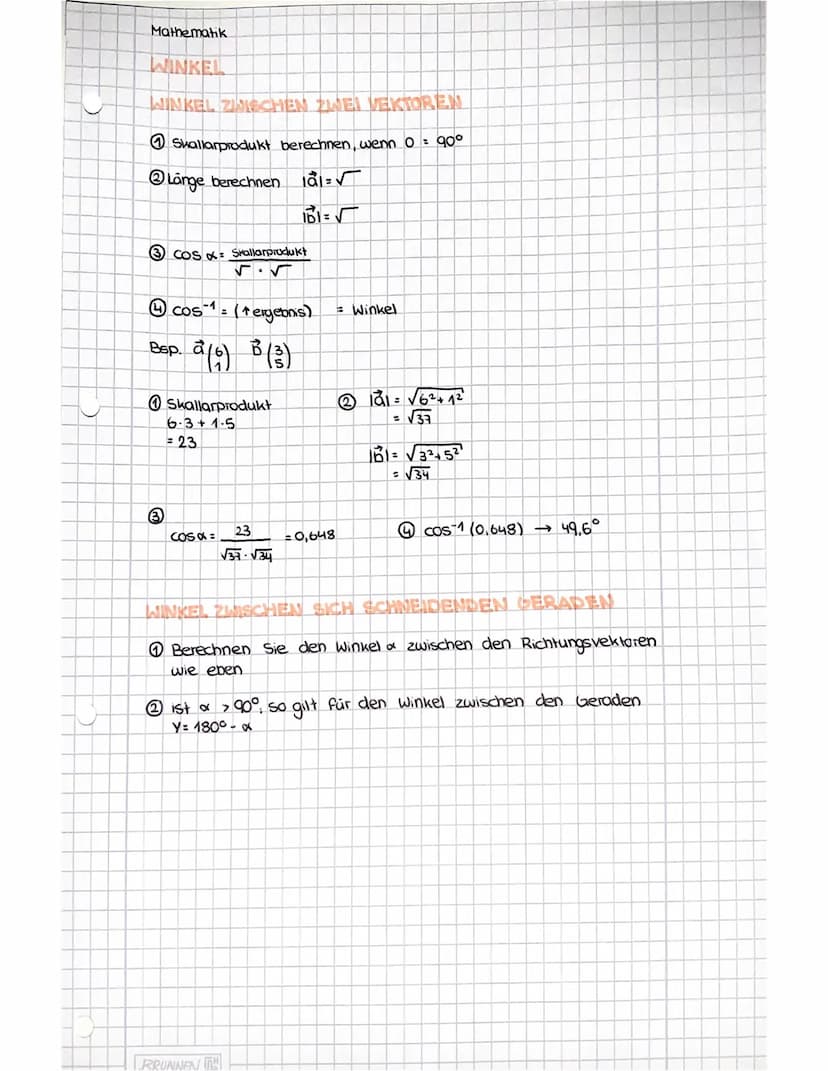 Mathematik
WINKEL
WINKEL ZWISCHEN ZWEI VEKTOREN
① Skallarprodukt berechnen, wenn 0 = 90°
② Länge berechnen |a⃗| = √
|b⃗| = √
③ cos α = Skallarprodukt / √ · √
④ cos⁻¹ = (↑ergebnis) = Winkel
Bsp. a⃗ (6 1) B⃗ (3 5)
① Skallarprodukt
6·3 + 1·5
= 23
② |a⃗| = √6² + 1²
= √37
|b⃗| = √3² + 5²
= √34
③
cos α = 23 / √37 · √34 = 0,648
④ cos⁻¹ (0,648) → 49,6°
WINKEL ZWISCHEN SICH SCHNEIDENDEN GERADEN
① Berechnen Sie den Winkel α zwischen den Richtungsvektoren
wie eben
② ist α > 90°, so gilt für den Winkel zwischen den Geraden
γ = 180° - α
BRUNNEN